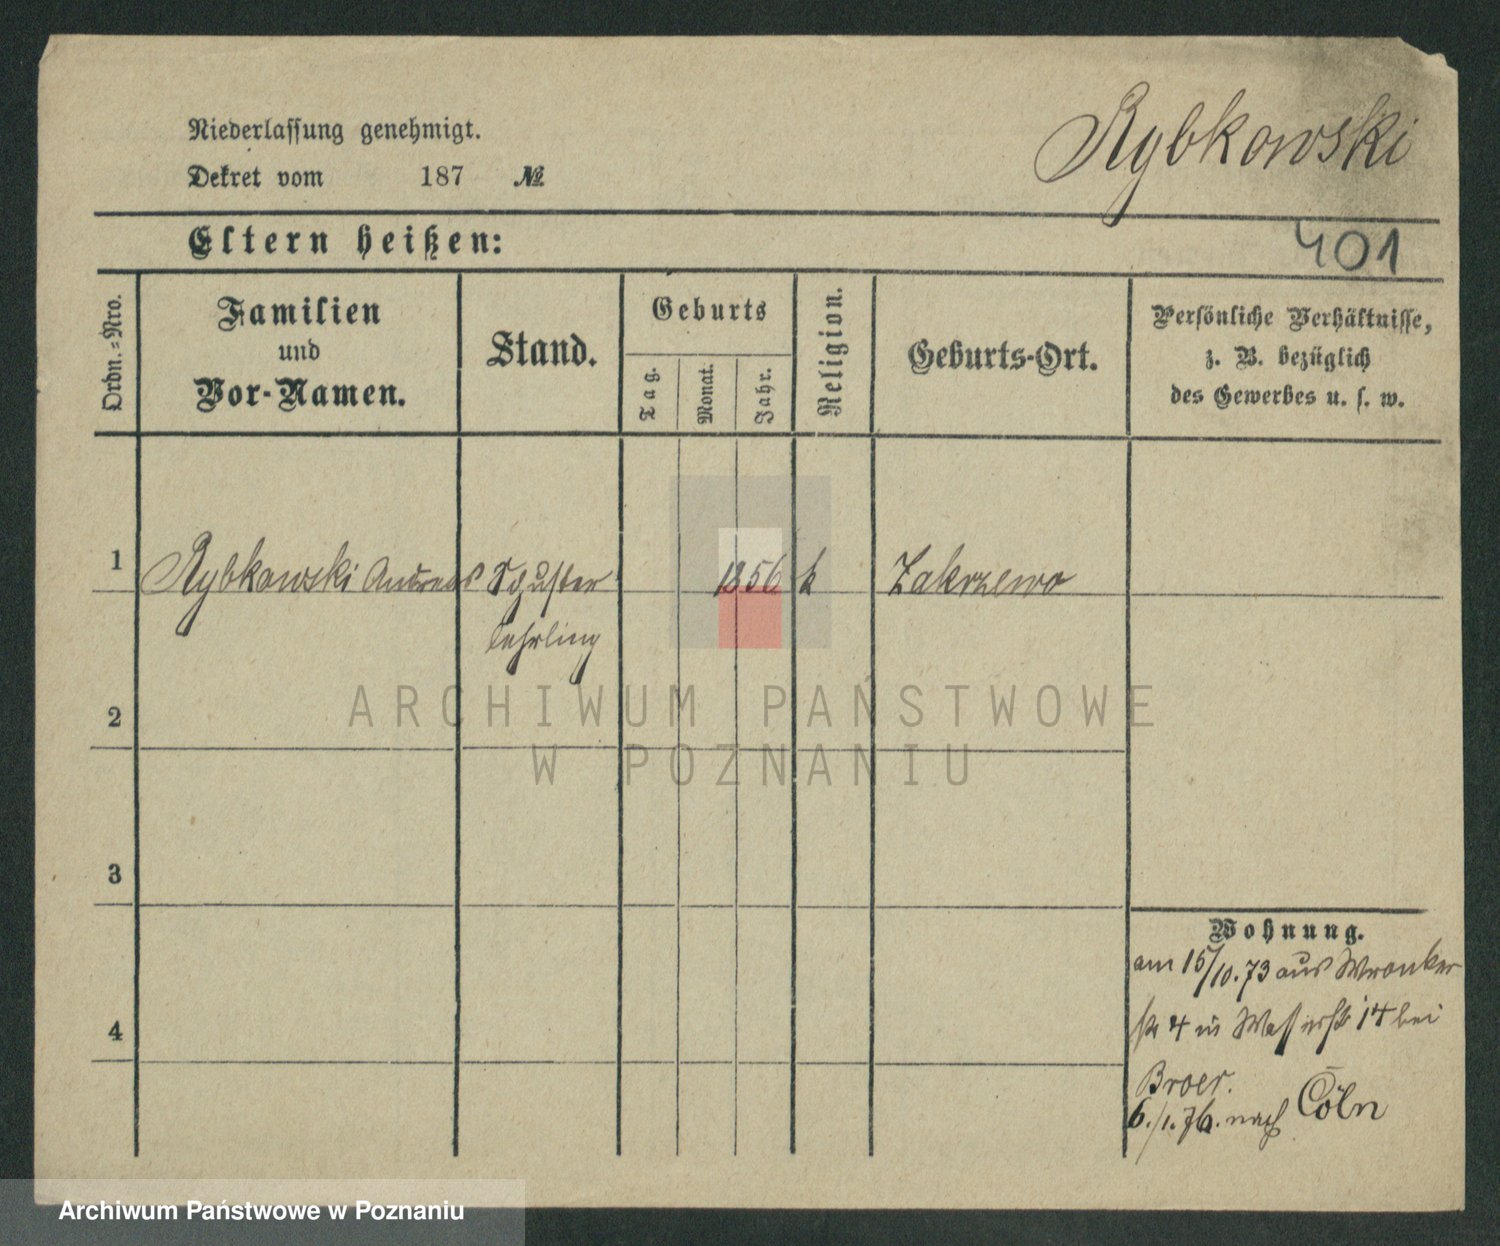 Niederlassung genehmigt.
Dekret vom 187 №
Rybkowski
Eltern heißen:
401
Ordn.=Nro.
Familien
und
Vor-Namen.
Stand.
Geburts
Tag.
Monat.
Jahr.
Religion.
Geburts-Ort.
Persönliche Verhältnisse,
z. B. bezüglich
des Gewerbes u. s. w.
1 Rybkowski Andreas Schuster 1856 k Zakrzewo
lehrling
2
3
4
Wohnung.
am 15/10.73 aus Wronker
str 4 in Wasserstr 14 bei
Broer.
6./1.76. nach Cöln
ARCHIWUM PAŃSTWOWE
W POZNANIU
Archiwum Państwowe w Poznaniu